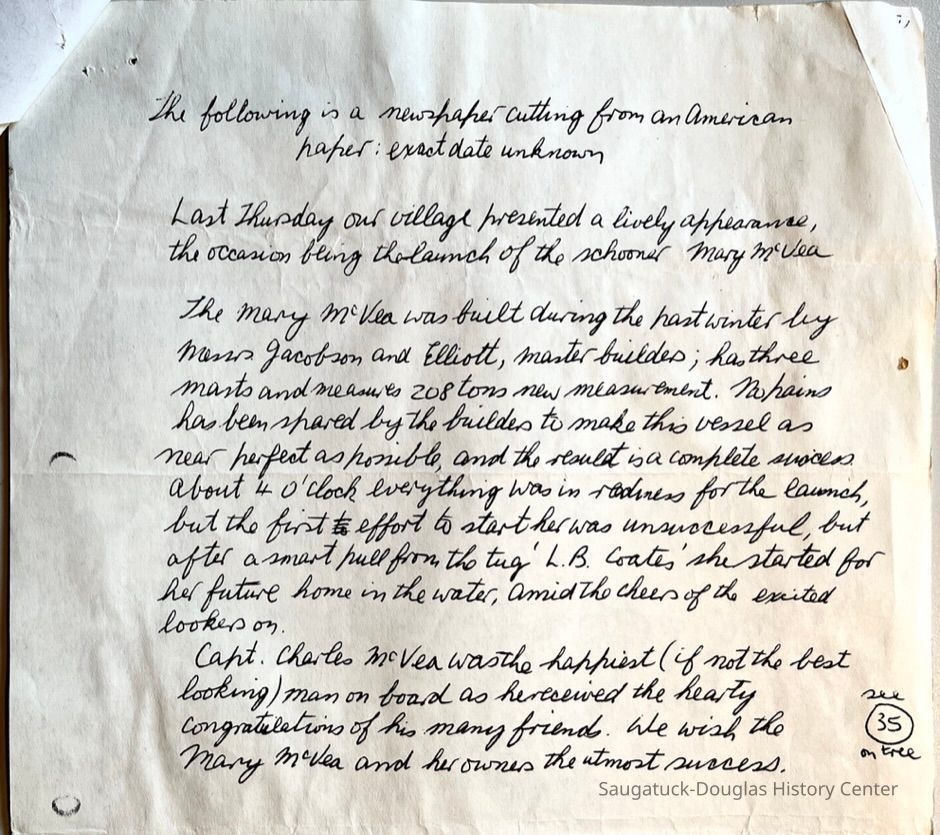 The following is a newspaper cutting from an American
paper: exact date unknown
Last Thursday our village presented a lively appearance,
the occasion being the launch of the schooner Mary McVea
The Mary McVea was built during the past winter by
Messrs Jacobson and Elliott, master builders; has three
masts and measures 208 tons new measurement. No pains
has been spared by the builders to make this vessel as
near perfect as possible, and the result is a complete success.
About 4 O'clock everything was in readiness for the launch,
but the first to effort to start her was unsuccessful, but
after a smart pull from the tug 'L.B. Coates' she started for
her future home in the water, amid the cheers of the excited
lookers on.
Capt. Charles McVea was the happiest (if not the best
looking) man on board as he received the hearty
congratulations of his many friends. We wish the
Mary McVea and her owners the utmost success.
see
35
on tree
Saugatuck-Douglas History Center